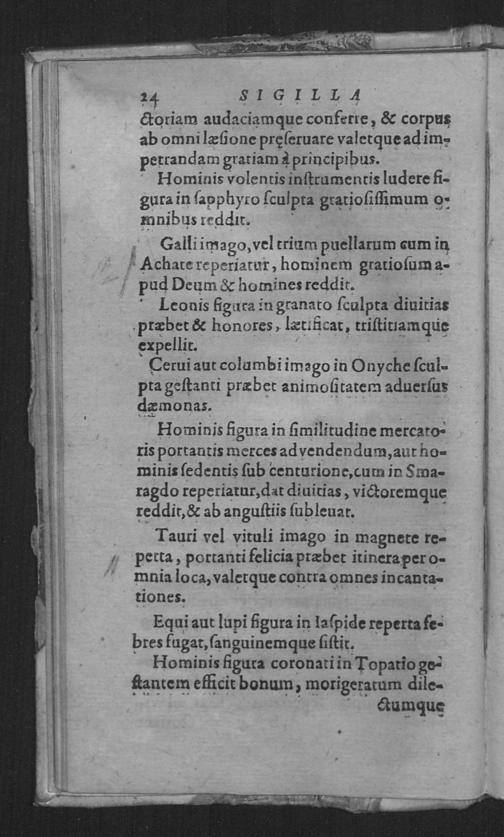 24 SIGILLA
ctoriam audaciamque conferre, & corpus
ab omni læsione pręseruare valetque ad im-
petrandam gratiam à principibus.
Hominis volentis instrumentis ludere fi-
gura in sapphyro sculpta gratiosissimum o-
mnibus reddit.
Galli imago, vel trium puellarum cum in
Achate reperiatur, hominem gratiosum a-
pud Deum & homines reddit.
Leonis figura in granato sculpta diuitias
præbet & honores, lætificat, tristitiamque
expellit.
Cerui aut columbi imago in Onyche scul-
pta gestanti præbet animositatem aduersus
dæmonas.
Hominis figura in similitudine mercato-
ris portantis merces ad vendendum, aut ho-
minis sedentis sub centurione, cum in Sma-
ragdo reperiatur, dat diuitias, victoremque
reddit, & ab angustiis subleuat.
Tauri vel vituli imago in magnete re-
perta, portanti felicia præbet itinera per o-
mnia loca, valetque contra omnes incanta-
tiones.
Equi aut lupi figura in Iaspide reperta fe-
bres fugat, sanguinemque sistit.
Hominis figura coronati in Topatio ge-
stantem efficit bonum, morigeratum dile-
ctumque